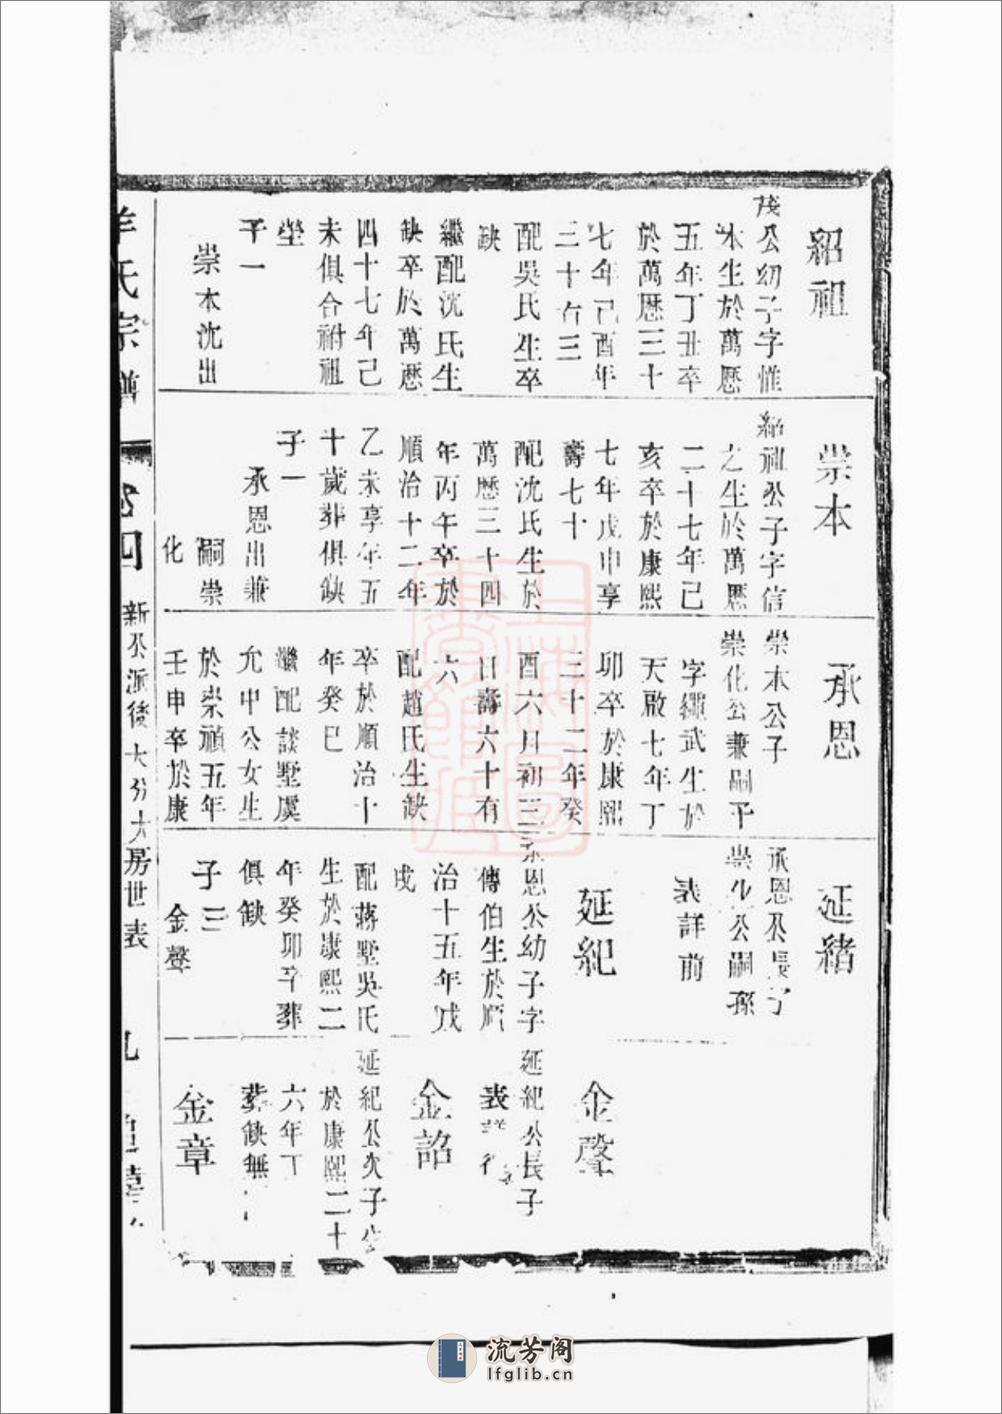 紹祖
茂公幼子字惟
本生於萬厯
五年丁丑卒
於萬厯三十
七年己酉年
三十有三
配吳氏生卒
缺
繼配沈氏生
缺卒於萬厯
四十七年己
未俱合祔祖
塋
子一
崇本沈出
崇本
紹祖公子字信
之生於萬厯
二十七年己
亥卒於康熙
七年戊申享
壽七十
配沈氏生於
萬厯三十四
年丙午卒於
順治十二年
乙未享年五
十歲葬俱缺
子一
承恩出兼
嗣崇
化
承恩
崇本公子
崇化公兼嗣子
字繩武生於
天啟七年丁
卯卒於康熙
三十二年癸
酉六月初三
日壽六十有
六
配趙氏生缺
卒於順治十
年癸巳
繼配談墅虞
允中公女生
於崇禎五年
壬申卒於康
延緒
承恩公長子
崇化公嗣孫
表詳前
延紀
承恩公幼子字
傳伯生於順
治十五年戊
戌
配蔣墅吳氏
生於康熙二
年癸卯卒葬
俱缺
子三
金聲
金聲
延紀公長子
表詳後
金詔
延紀公次子生
於康熙二十
六年丁
葬缺無
金章
羊氏宗譜
卷四
新公派後大分大房世表
九